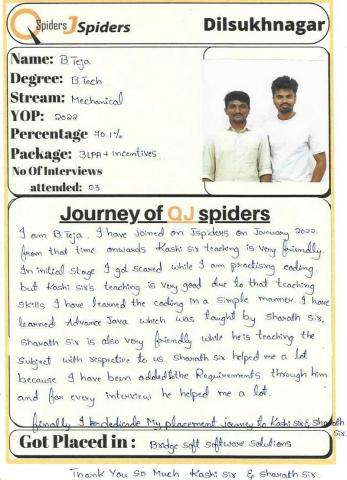 QSpiders JSpiders Dilsukhnagar
Name: B Teja
Degree: B.Tech
Stream: Mechanical
YOP: 2022
Percentage 70.1%
Package: 3LPA + incentives
No Of Interviews
attended: 03
Journey of QJ spiders
I am B.Teja. I have joined on Jspiders on January 2022.
from that time onwards Kashi sir teaching is very friendly.
In initial stage I got scared while I am practising coding.
but Kashi sir's teaching is very good due to that teaching
skills I have learned the coding in a simple manner. I have
learned Advance Java which was taught by sharath sir,
sharath sir is also very friendly while he is teaching the
subject with respective to us. sharath sir helped me a lot
because I have been added to the Requirements through him
and for every interview he helped me a lot.
finally I dedicade My placement journey to Kashi sir & sharath
sir.
Got Placed in : Bridge soft software solutions
Thank You so Much Kashi sir & sharath sir.